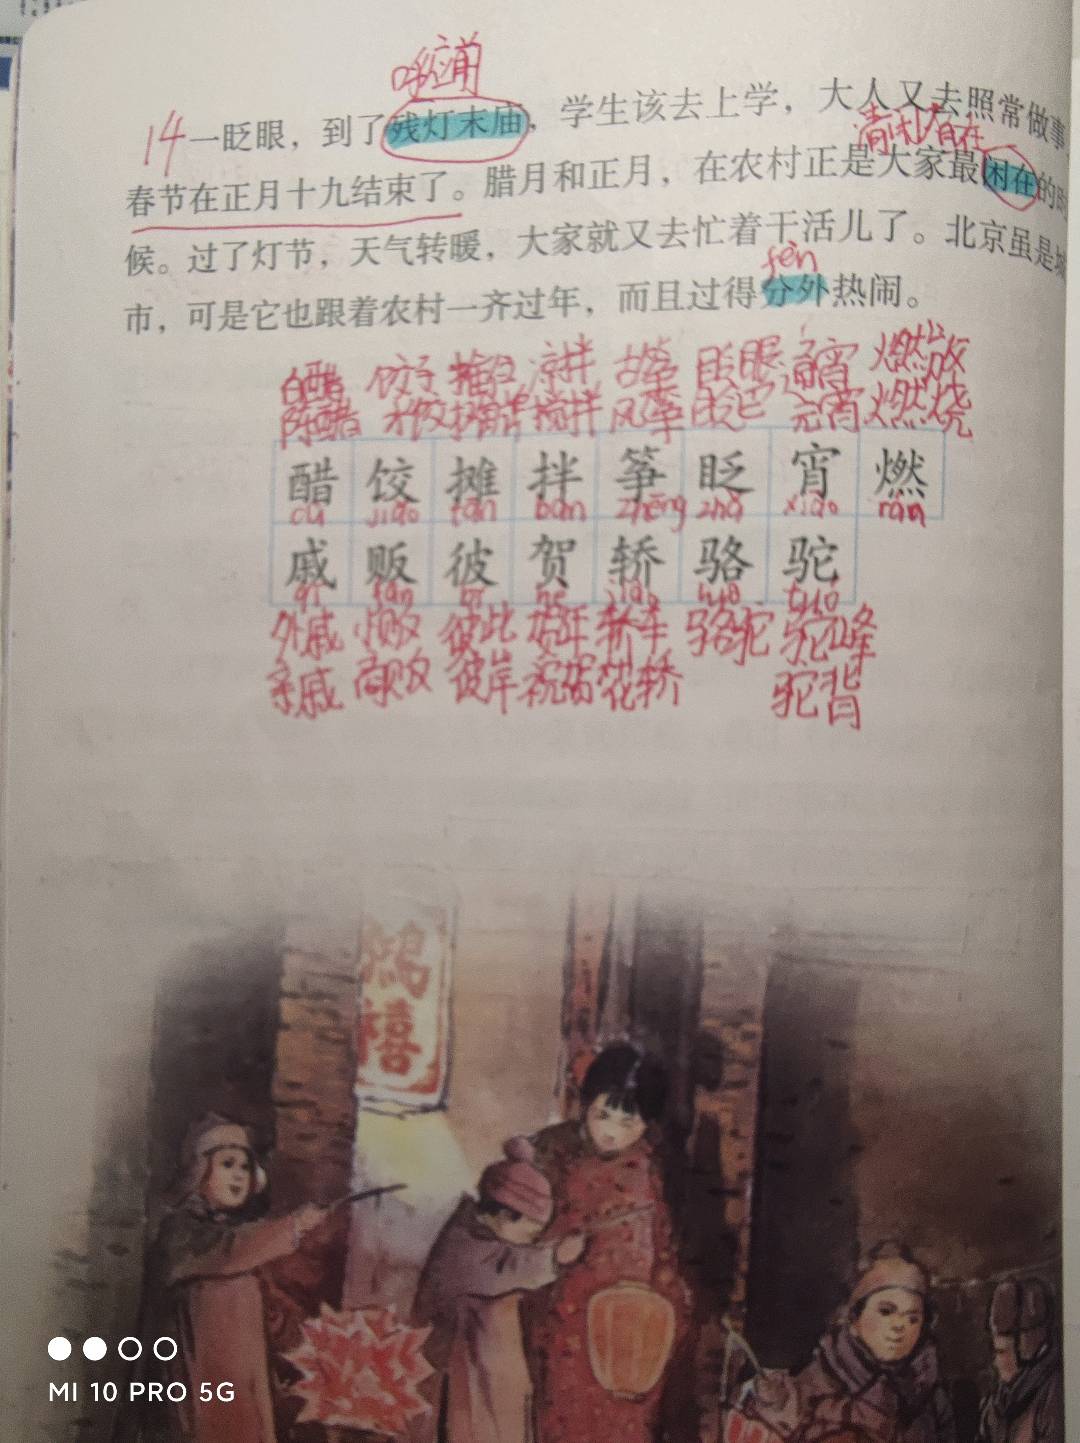 呼应前
14 一眨眼，到了残灯末庙，学生该去上学，大人又去照常做事，
清闲 自在
春节在正月十九结束了。腊月和正月，在农村正是大家最闲在的时
候。过了灯节，天气转暖，大家就又去忙着干活儿了。北京虽是城
fèn
市，可是它也跟着农村一齐过年，而且过得分外热闹。
白醋 饺子 摊位 凉拌 古筝 眨眼 通宵 燃放
陈醋 水饺 搅拌 风筝 眨巴 元宵 燃烧
醋 饺 摊 拌 筝 眨 宵 燃
cù jiǎo tān bàn zhēng zhǎ xiāo rán
戚 贩 彼 贺 轿 骆 驼
qī fàn bǐ hè jiào luò tuó
外戚 小贩 彼此 贺年 轿车 骆驼 驼峰
亲戚 商贩 彼岸 祝贺 花轿 驼背
鸿
禧
MI 10 PRO 5G